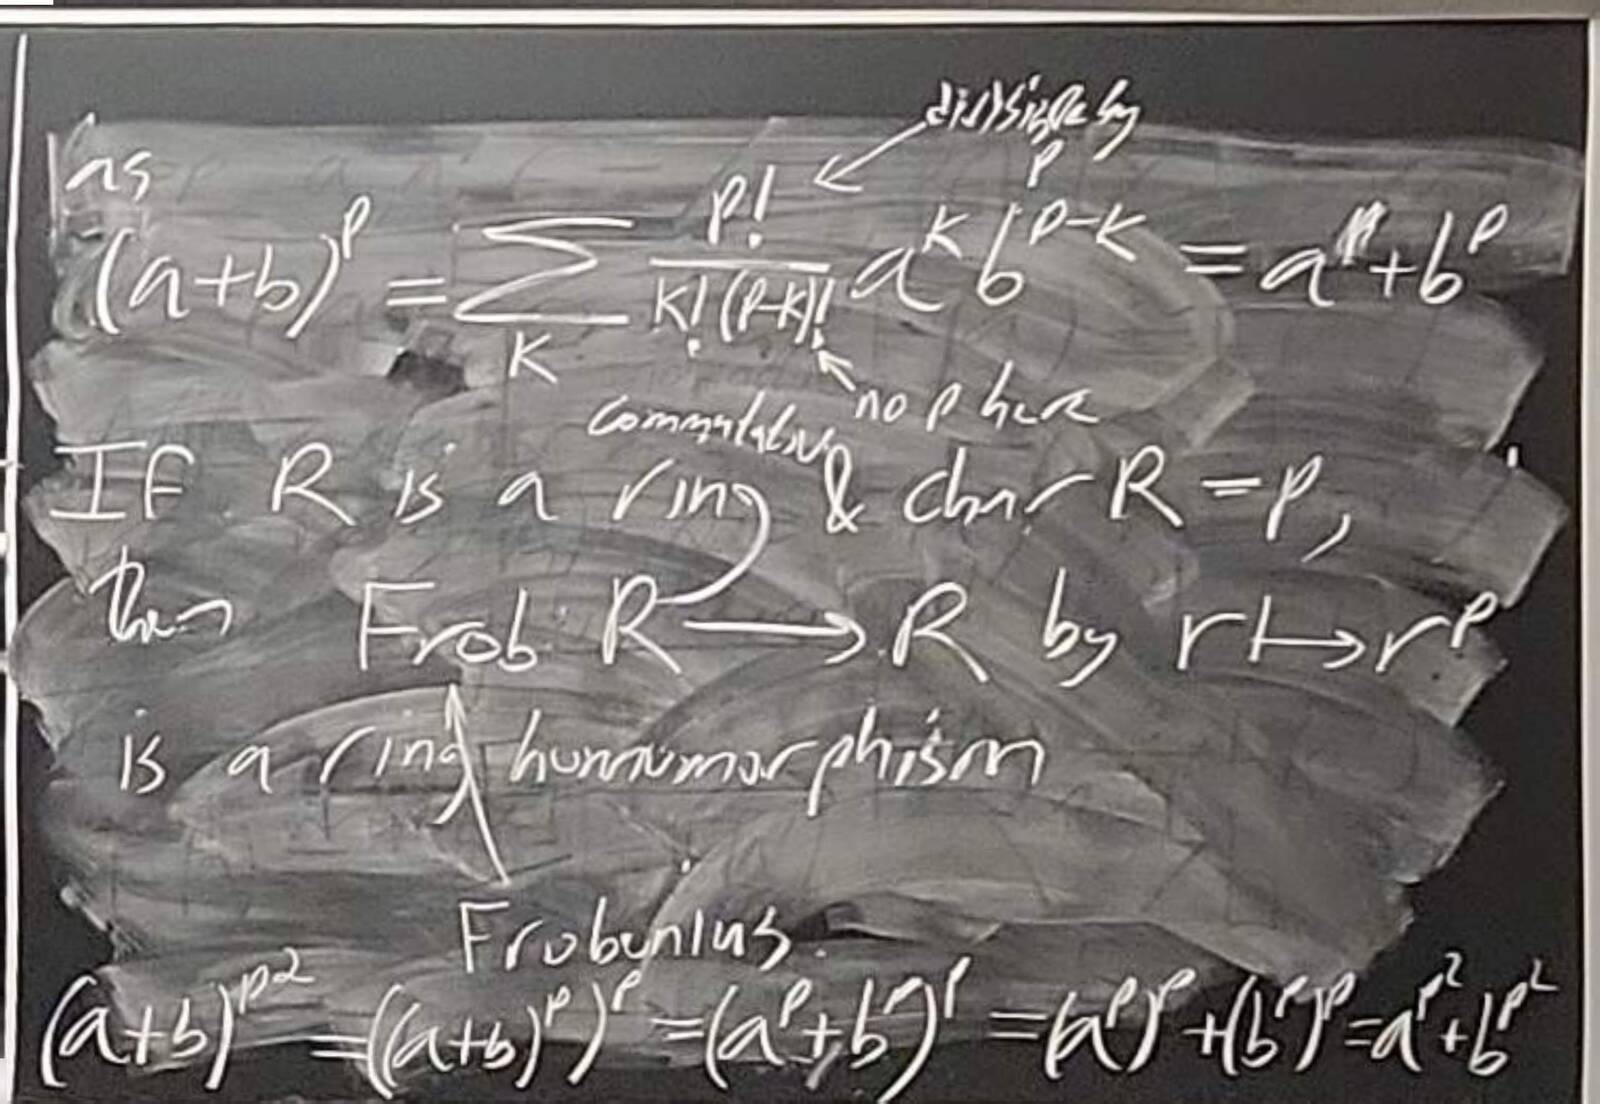 divisible by
p
as
(a+b)^p = Σ_K p!/(K!(p-K)!) a^K b^{p-K} = a^p + b^p
no p here
commutative
If R is a ring & char R = p,
then Frob: R ⟶ R by r ↦ r^p
is a ring homomorphism
Frobenius.
(a+b)^{p^2} = ((a+b)^p)^p = (a^p+b^p)^p = (a^p)^p + (b^p)^p = a^{p^2} + b^{p^2}